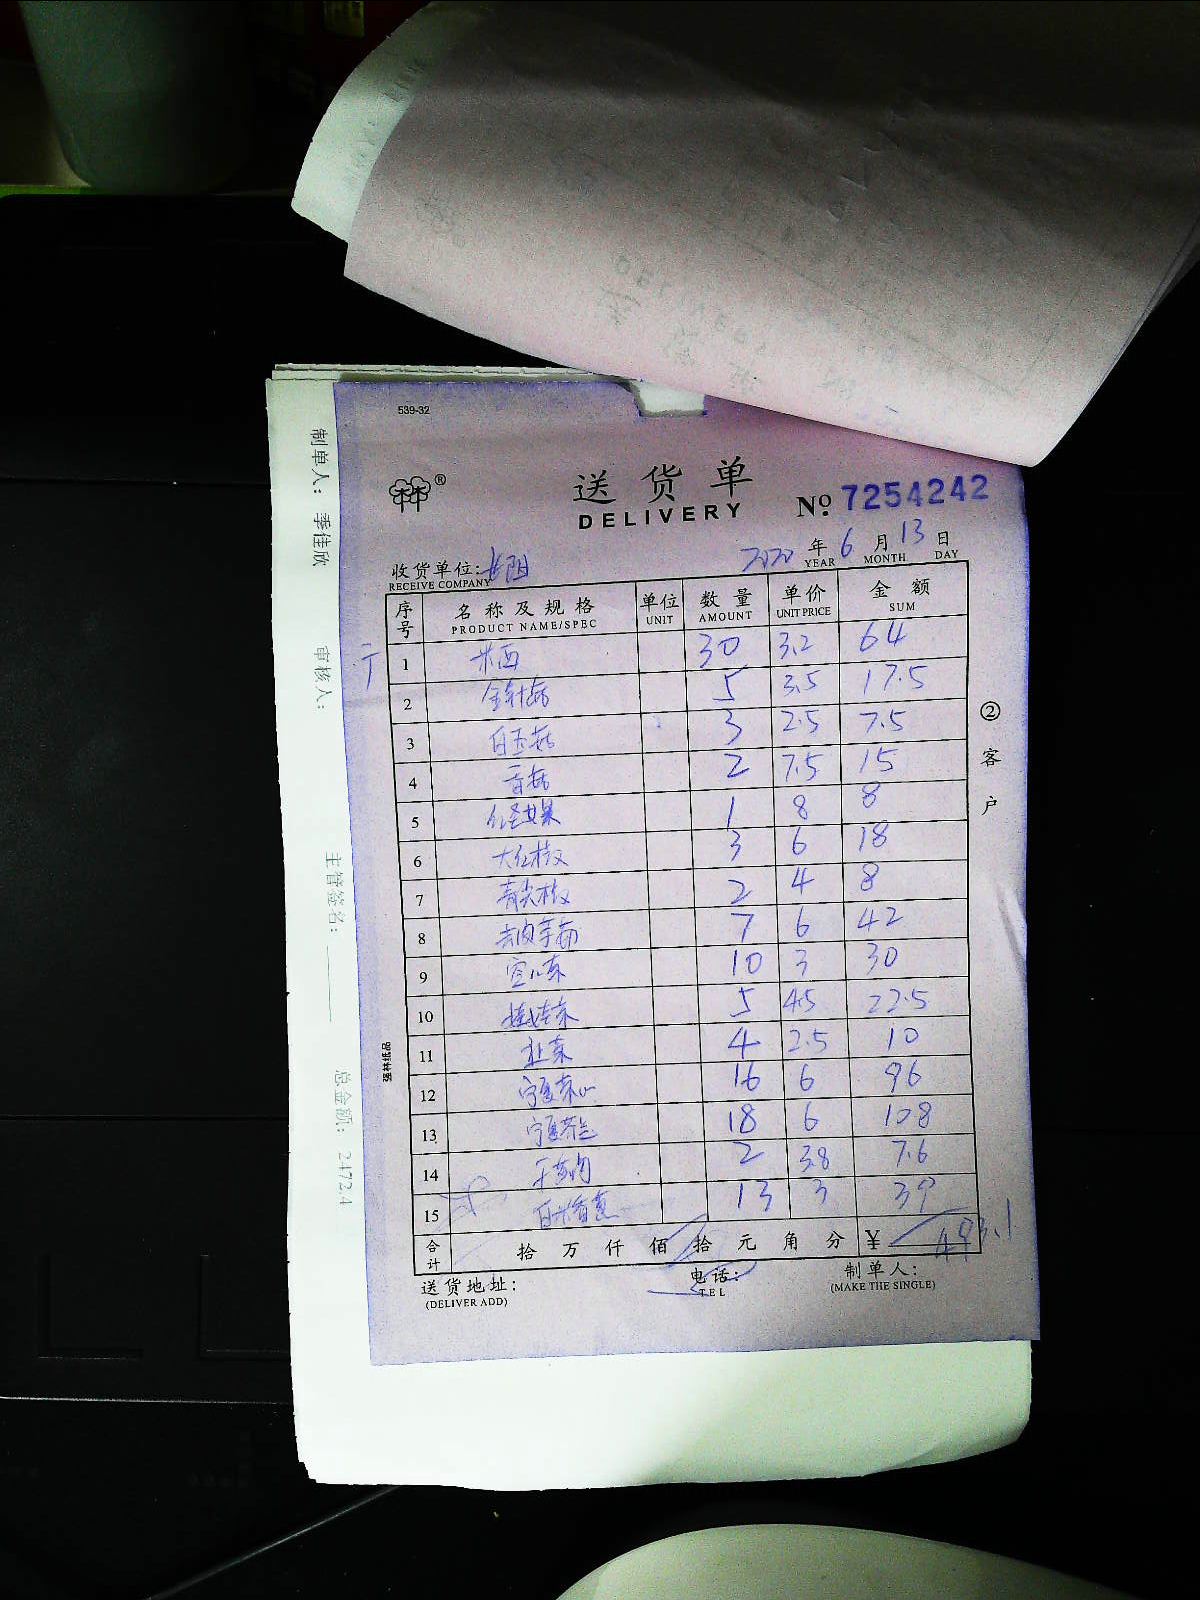 539-32
林®
送货单
DELIVERY
№ 7254242
2020 年 6 月 13 日
YEAR MONTH DAY
收货单位:
RECEIVE COMPANY
序号 名称及规格 单位 数量 单价 金额
PRODUCT NAME/SPEC UNIT AMOUNT UNIT PRICE SUM
1 30 3.2 64
2 金针菇 5 3.5 17.5
3 白玉菇 3 2.5 7.5
4 香菇 2 7.5 15
5 1 8 8
6 大红椒 3 6 18
7 青尖椒 2 4 8
8 7 6 42
9 10 3 30
10 娃娃菜 5 4.5 22.5
11 4 2.5 10
12 宁夏菜心 16 6 96
13 宁夏芥兰 18 6 108
14 2 3.8 7.6
15 13 3 39
合计 拾万仟佰拾元角分 ¥ 493.1
送货地址:
(DELIVER ADD)
电话:
TEL
制单人:
(MAKE THE SINGLE)
②客户
强林纸品
制单人: 季佳欣
审核人:
主管签名:
总金额: 2472.4